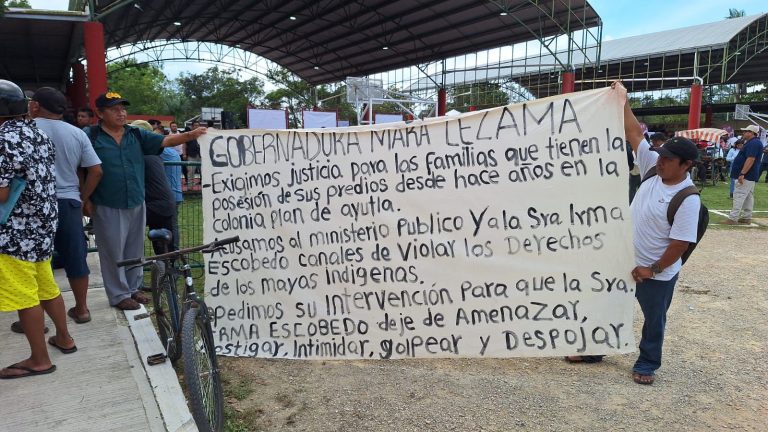 GOBERNADORA MARA LEZAMA
-Exigimos justicia para las familias que tienen la
posesión de sus predios desde hace años en la
colonia plan de ayutla.
Acusamos al ministerio Publico Y a la Sra Irma
Escobedo canales de Violar los Derechos
de los mayas indigenas.
pedimos su Intervención para que la Sra.
IRMA ESCOBEDO deje de Amenazar,
ostigar, Intimidar, golpear y Despojar.